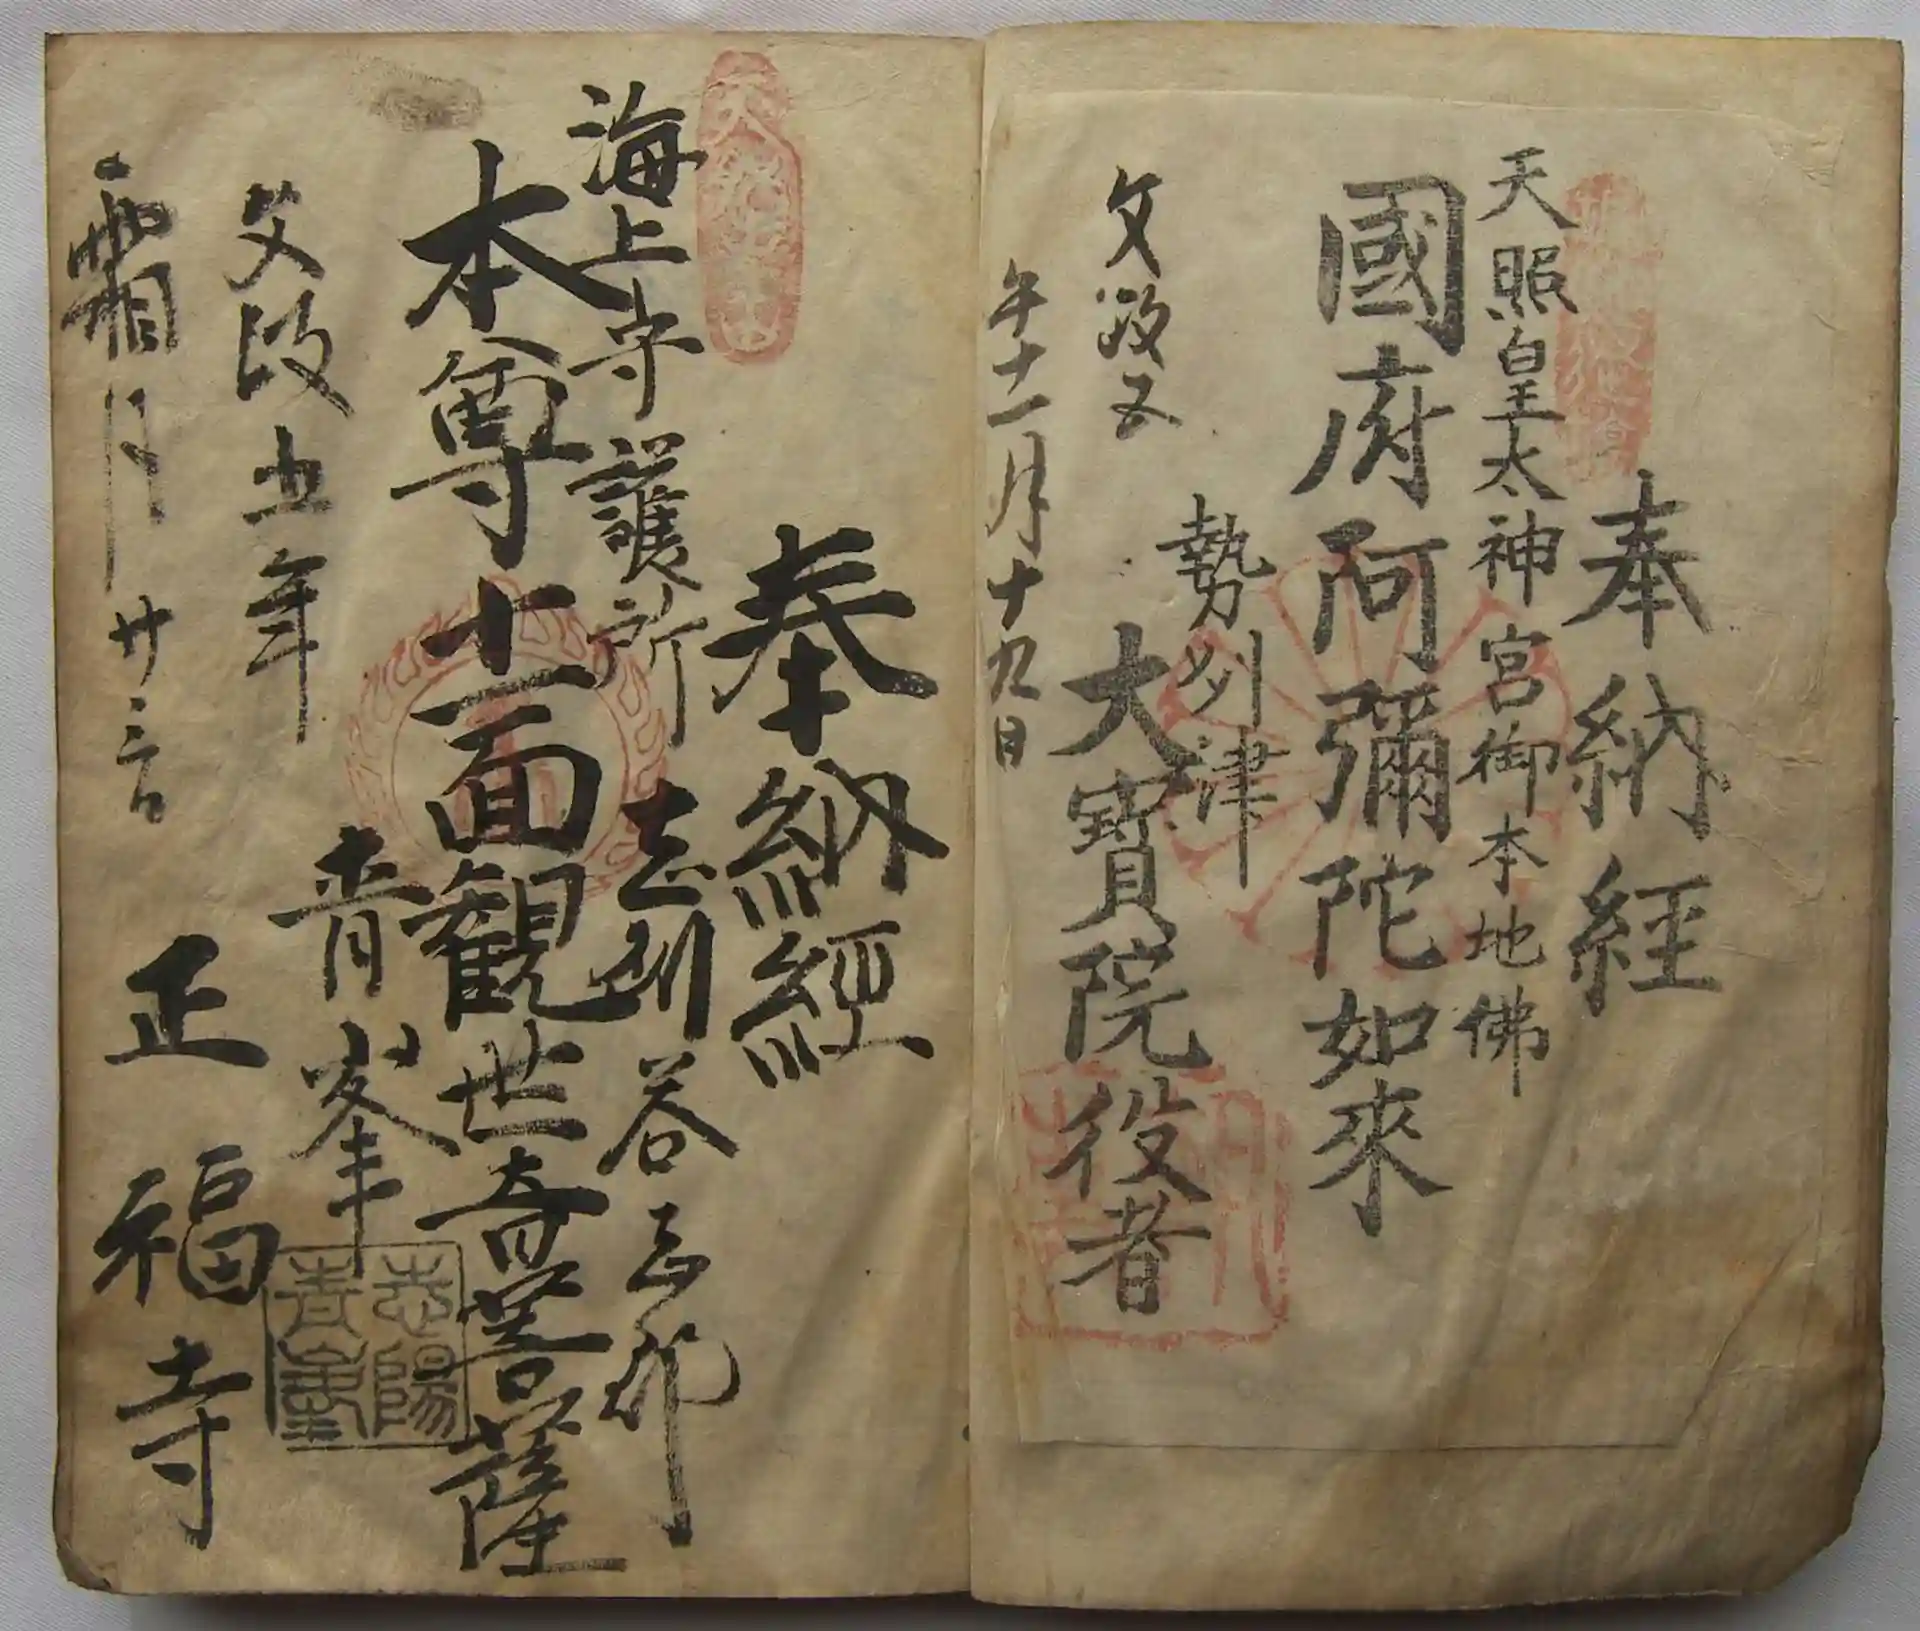 奉納経
天照皇太神宮御本地佛
國府阿彌陀如來
勢州津
大寳院役者
文政五
午十一月十九日
奉納經
海上守護所
志州答志郡
本尊十一面観世音菩薩
青峯
文政五年
霜月廿三日
正福寺
志陽青峯